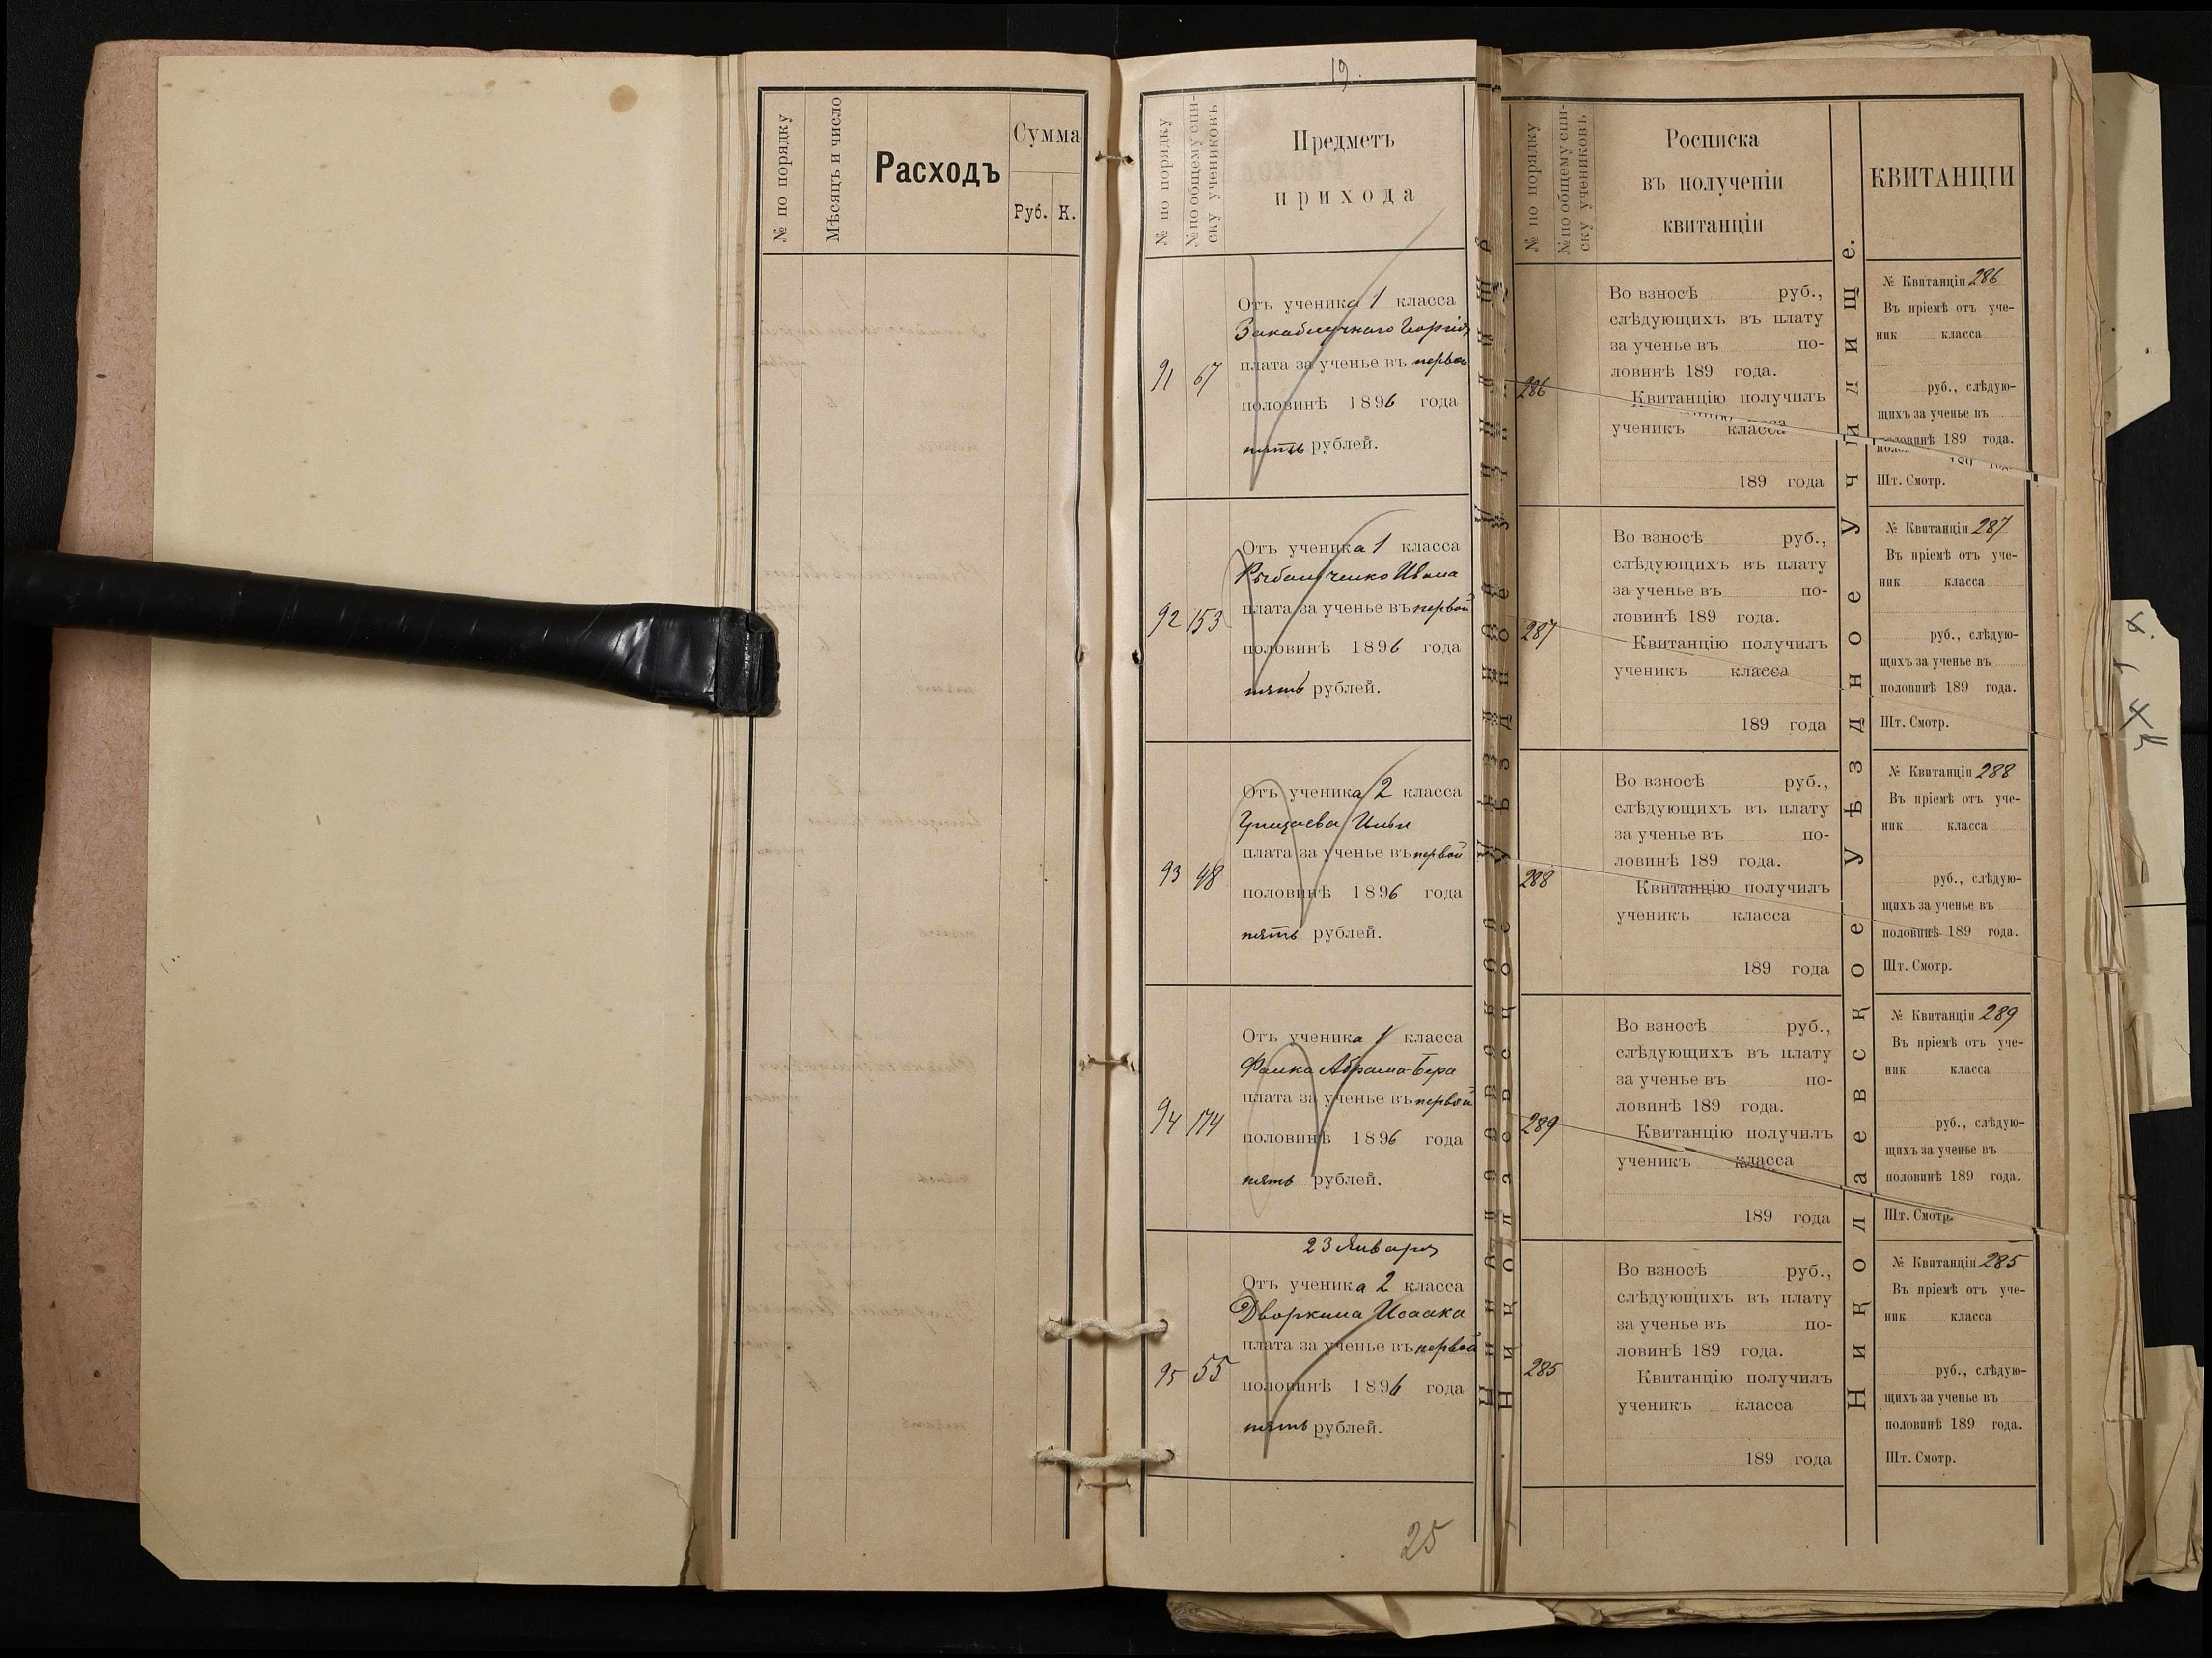 № по порядку
Мѣсяцъ и число
Расходъ
Сумма
Руб. К.
19.
№ по порядку
№ по общему спи-
ску учениковъ
Предметъ
прихода
91 67
Отъ ученика 1 класса
Георгія
плата за ученье въ первой
половинѣ 1896 года
пять рублей.
92 153
Отъ ученика 1 класса
Ивана
плата за ученье въ первой
половинѣ 1896 года
пять рублей.
93 48
Отъ ученика 2 класса
Ильи
плата за ученье въ первой
половинѣ 1896 года
пять рублей.
94 174
Отъ ученика 1 класса
Фалка Абрама-Бера
плата за ученье въ первой
половинѣ 1896 года
пять рублей.
23 Января
95 55
Отъ ученика 2 класса
Дворкина Исаака
плата за ученье въ первой
половинѣ 1896 года
пять рублей.
25
№ по порядку
№ по общему спи-
ску учениковъ
Росписка
въ полученіи
квитанціи
286
Во взносѣ руб.,
слѣдующихъ въ плату
за ученье въ по-
ловинѣ 189 года.
Квитанцію получилъ
ученикъ класса
189 года
287
Во взносѣ руб.,
слѣдующихъ въ плату
за ученье въ по-
ловинѣ 189 года.
Квитанцію получилъ
ученикъ класса
189 года
288
Во взносѣ руб.,
слѣдующихъ въ плату
за ученье въ по-
ловинѣ 189 года.
Квитанцію получилъ
ученикъ класса
189 года
289
Во взносѣ руб.,
слѣдующихъ въ плату
за ученье въ по-
ловинѣ 189 года.
Квитанцію получилъ
ученикъ класса
189 года
285
Во взносѣ руб.,
слѣдующихъ въ плату
за ученье въ по-
ловинѣ 189 года.
Квитанцію получилъ
ученикъ класса
189 года
Николаевское Уѣздное Училище.
КВИТАНЦІИ
№ Квитанціи 286
Въ пріемѣ отъ уче-
ник класса
руб., слѣдую-
щихъ за ученье въ
половинѣ 189 года.
Шт. Смотр.
№ Квитанціи 287
Въ пріемѣ отъ уче-
ник класса
руб., слѣдую-
щихъ за ученье въ
половинѣ 189 года.
Шт. Смотр.
№ Квитанціи 288
Въ пріемѣ отъ уче-
ник класса
руб., слѣдую-
щихъ за ученье въ
половинѣ 189 года.
Шт. Смотр.
№ Квитанціи 289
Въ пріемѣ отъ уче-
ник класса
руб., слѣдую-
щихъ за ученье въ
половинѣ 189 года.
Шт. Смотр.
№ Квитанціи 285
Въ пріемѣ отъ уче-
ник класса
руб., слѣдую-
щихъ за ученье въ
половинѣ 189 года.
Шт. Смотр.